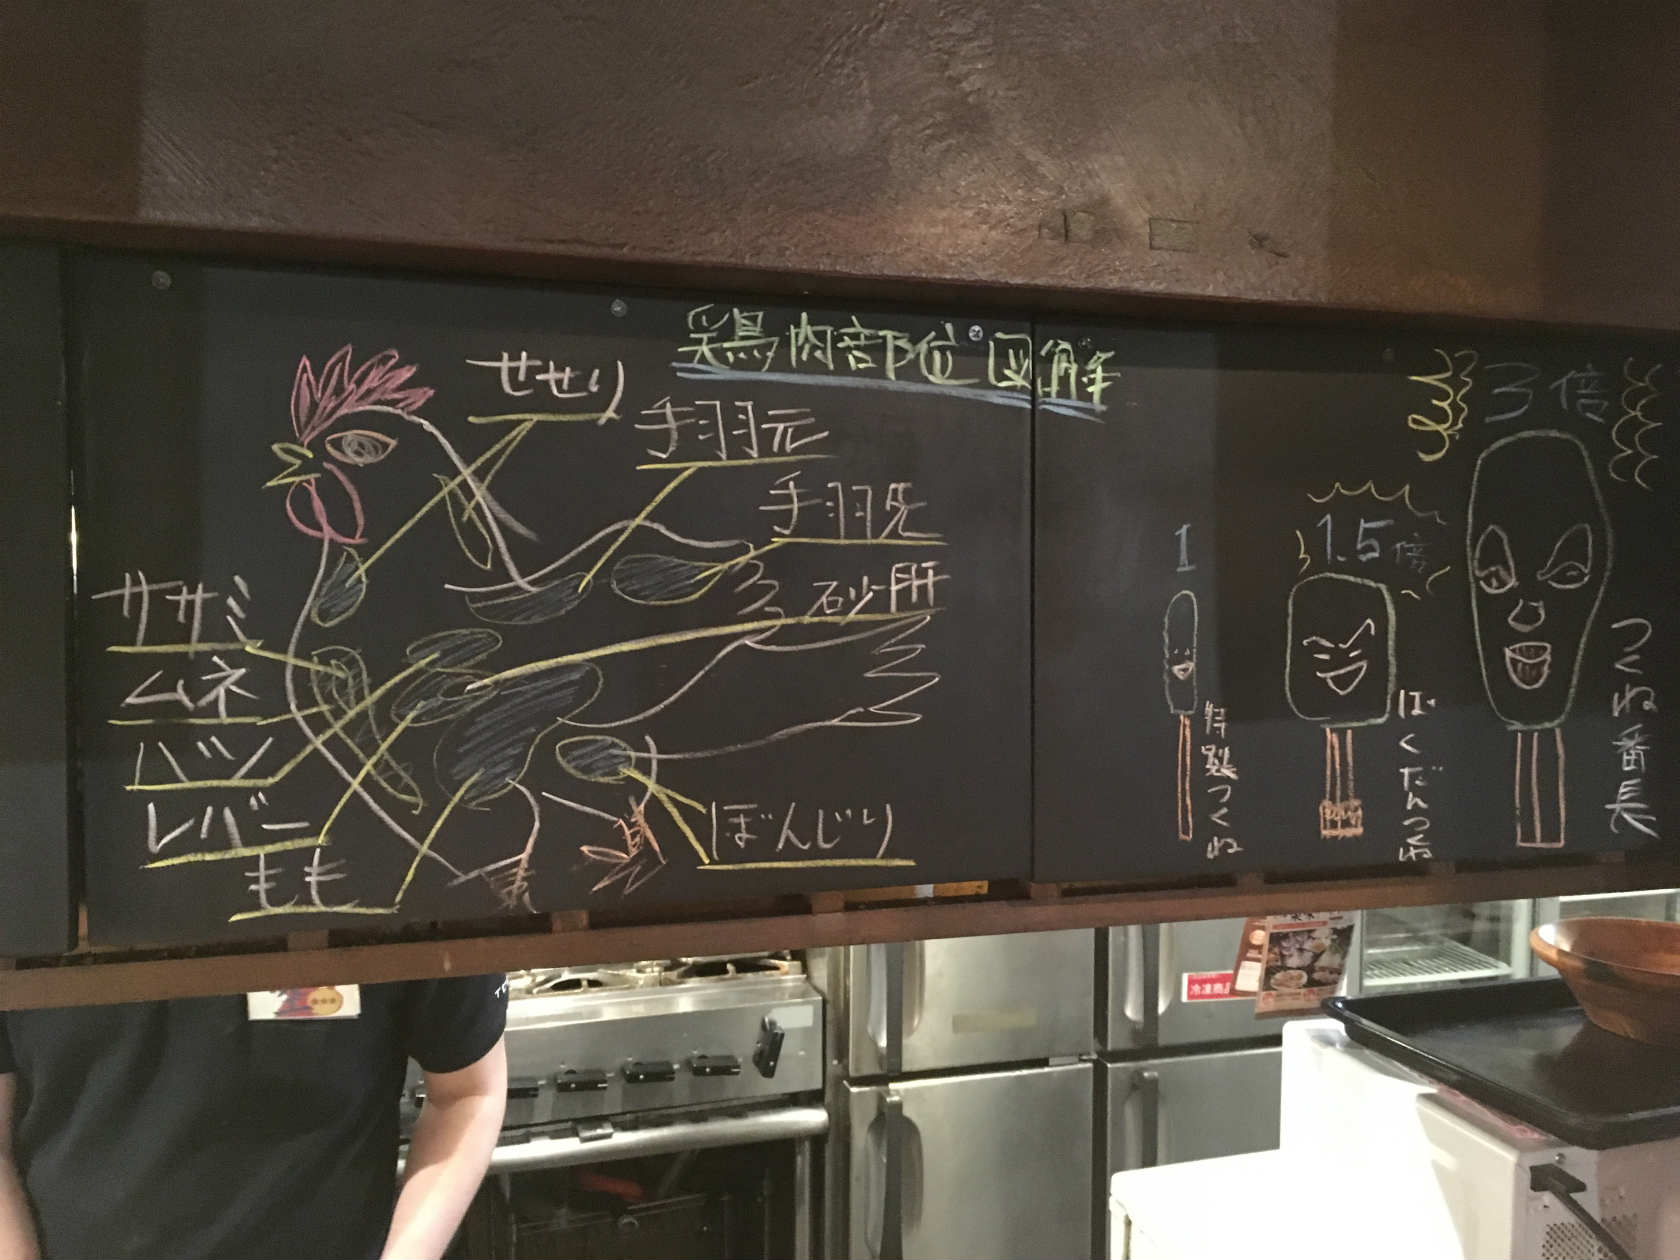 鶏肉部位図解
せせり
手羽元
手羽先
砂肝
ササミ
ムネ
ハツ
レバー
もも
ぼんじり
1
特製つくね
1.5倍
ばくだんつくね
3倍
つくね番長
冷凍商品